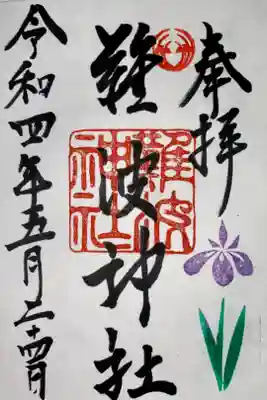 奉拝
難波神社
難波
神社
令和四年五月二十四日